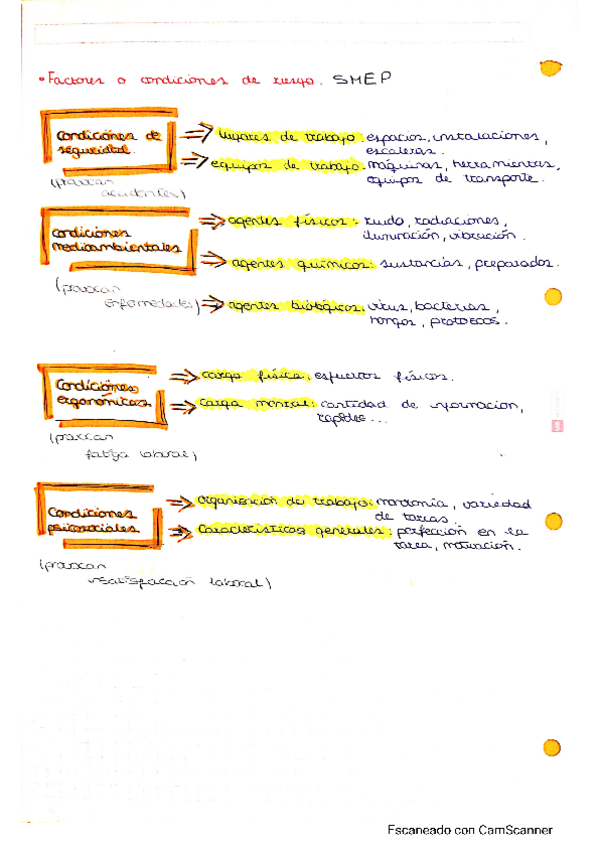 • Factores o condiciones de riesgo. SMEP
Condiciones de seguridad.
⇒ lugares de trabajo: espacios, instalaciones,
escaleras.
⇒ equipos de trabajo: máquinas, herramientas,
equipos de transporte.
(provocan
accidentes)
condiciones
medioambientales
⇒ agentes físicos: ruido, radiaciones,
iluminación, vibración.
⇒ agentes químicos: sustancias, preparados.
(provocan
enfermedades)
⇒ agentes biológicos: virus, bacterias,
hongos, protozoos.
Condiciones
ergonómicas
⇒ carga física: esfuerzos físicos.
⇒ carga mental: cantidad de información,
rapidez...
(provocan
fatiga laboral)
Condiciones
psicosociales
⇒ organización de trabajo: monotonía, variedad
de tareas.
⇒ Características generales: perfección en la
tarea, motivación.
(provocan
insatisfacción laboral)
Escaneado con CamScanner